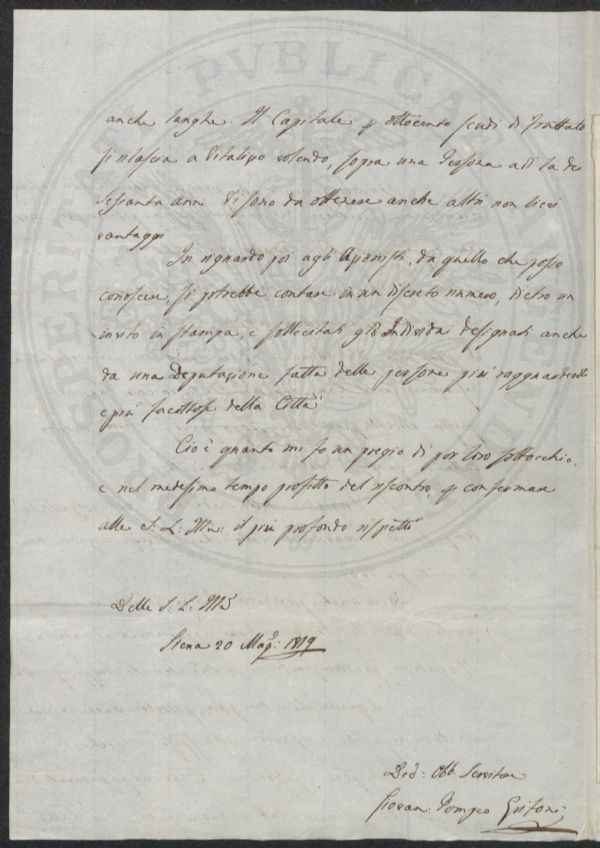 anche lunghe. Il Capitale p ottocento scudi di fruttato
si rilascia a Vitalizio volendo, sopra una Persona a di la dei
sessanta anni. Vi sono da ottenere anche altri non lievi
vantaggi
In riguardo poi agli Azionisti, da quello che posso
conoscere, si potrebbe contare in un discreto numero, dietro un
invito in stampa, e sollecitati gli Individui designati anche
da una Deputazione fatta delle persone più ragguardevoli
e più facoltose della Città
Cio è quanto mi fo un pregio di por loro sottocchio,
e nel medesimo tempo profitto del riscontro, p confermare
alle S. L. Ill: il più profondo rispetto
Delle S. L. Ill
Siena 20 Mag: 1819
Ded: Obb. Servitore
Giovan: Pompeo
PVBLICAE
PROSPERITATI